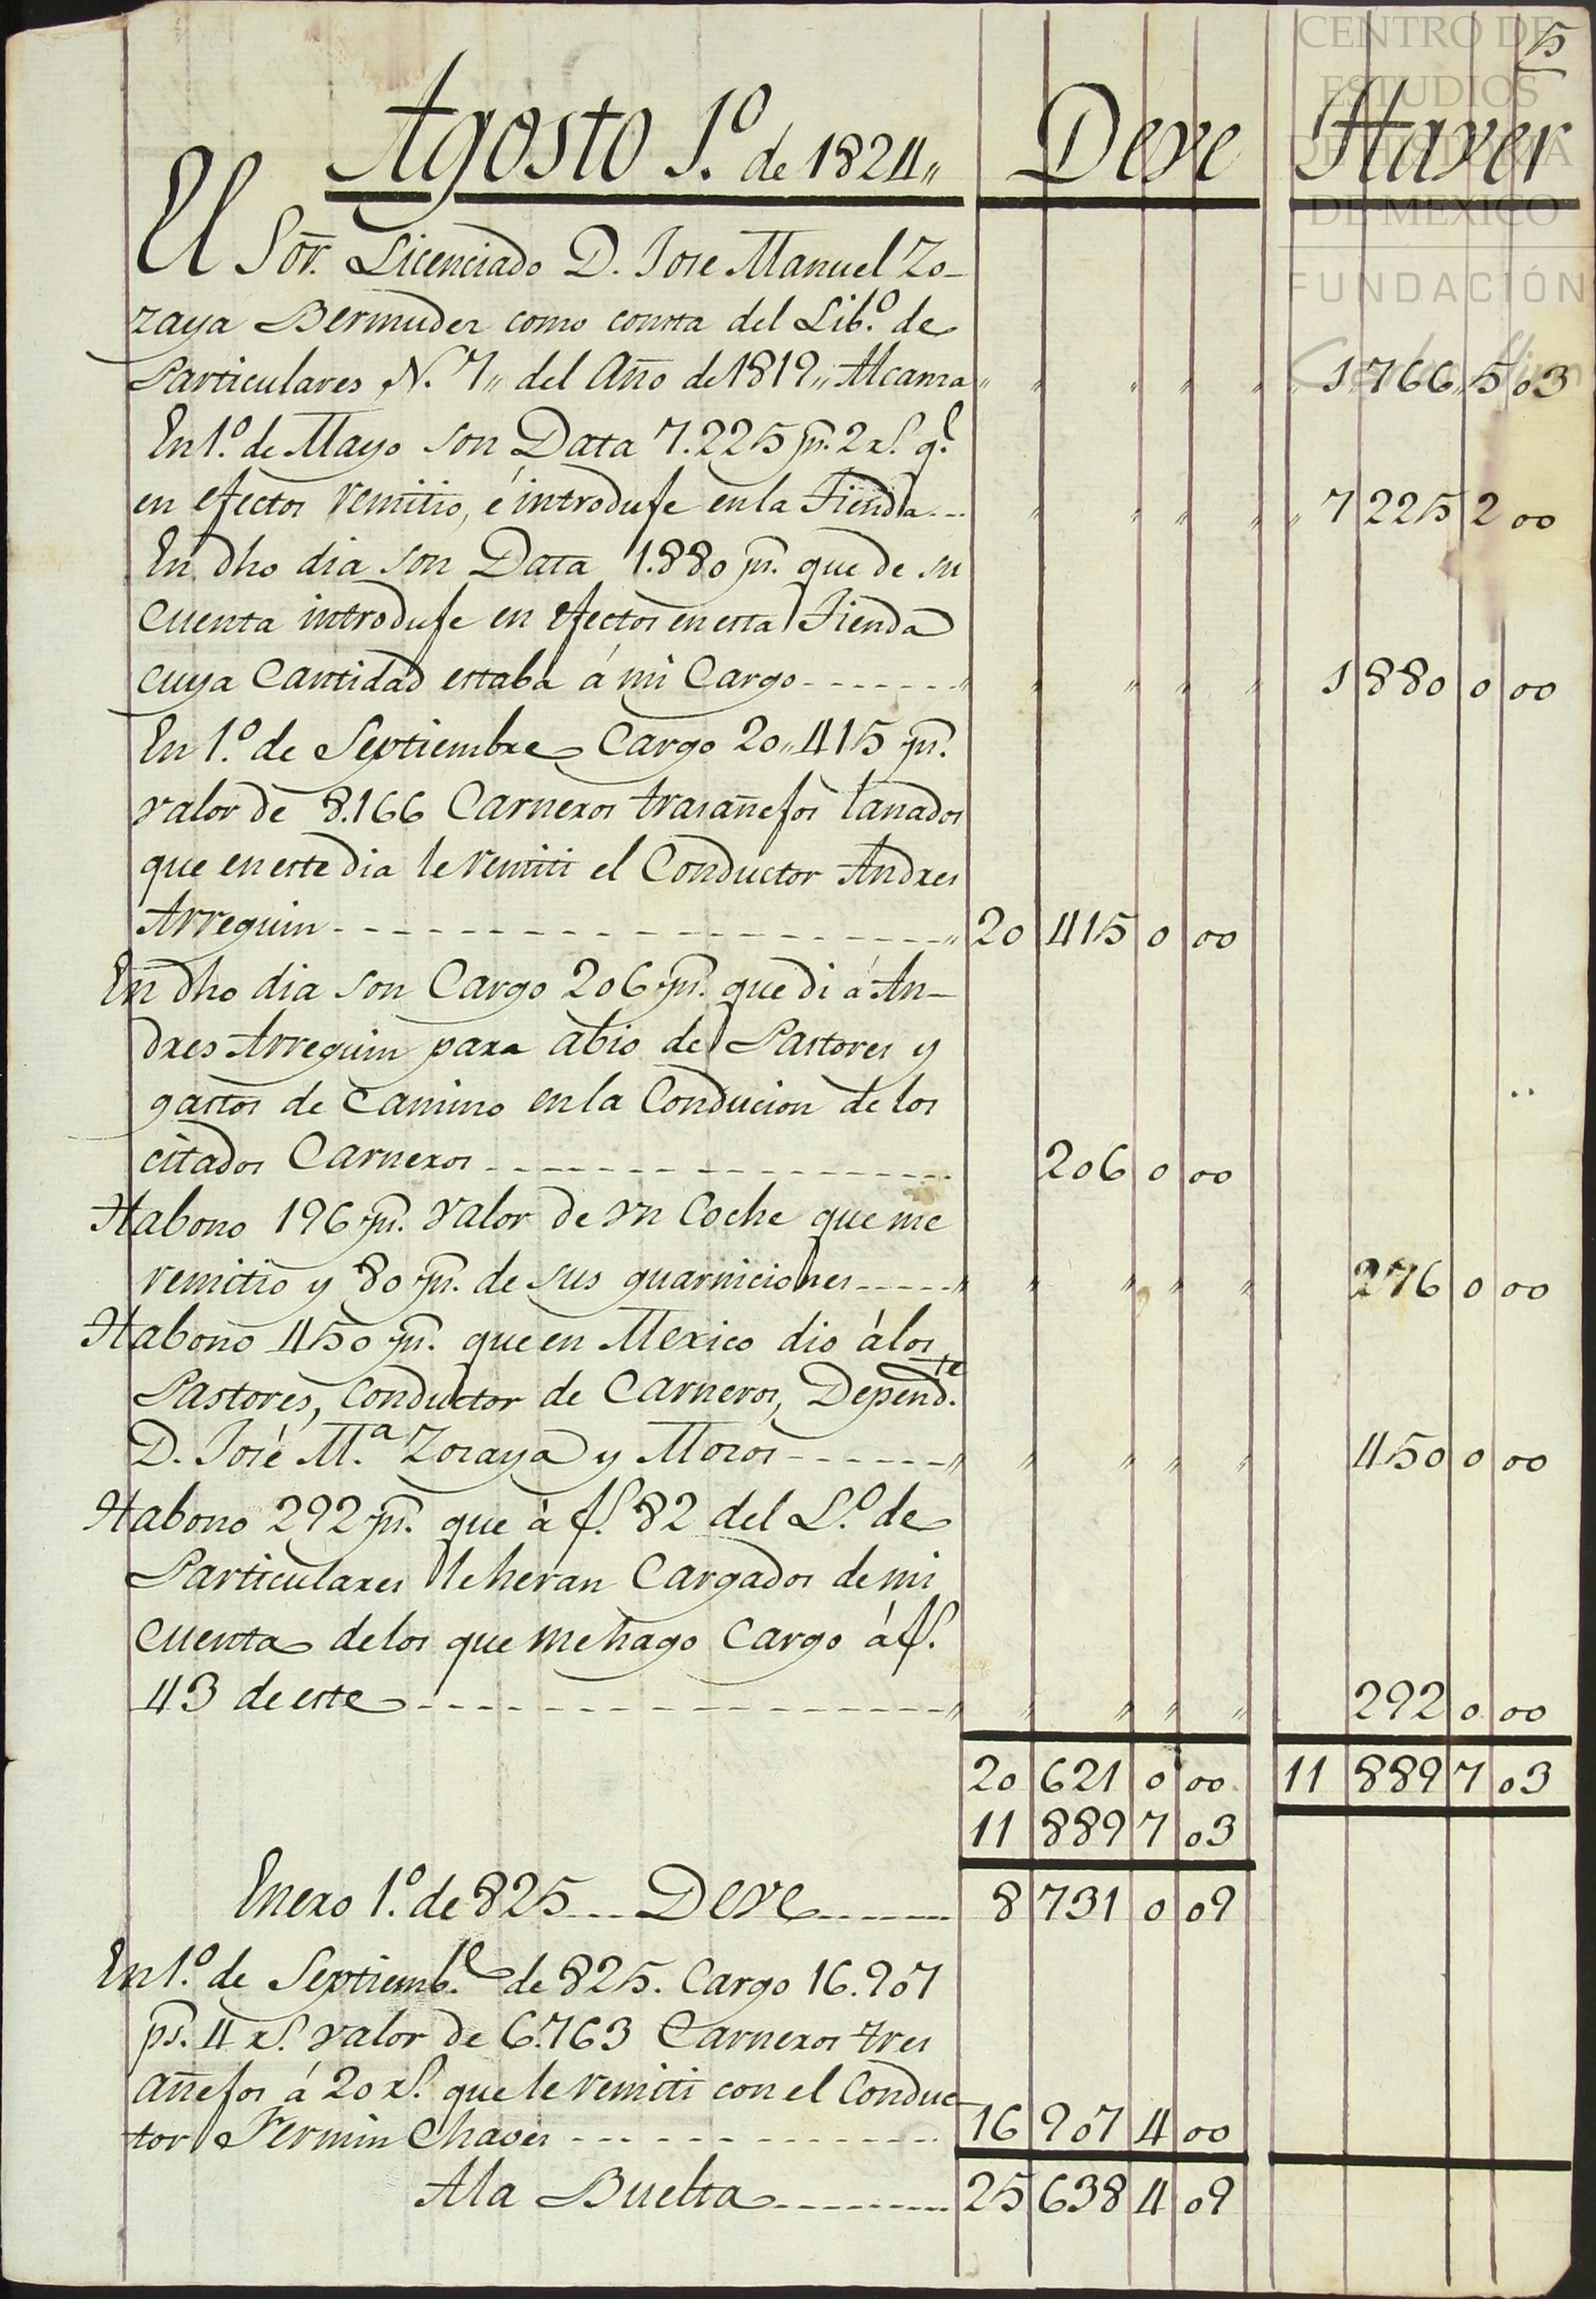 CENTRO DE
ESTUDIOS
DE HISTORIA
DE MEXICO
FUNDACIÓN
Carlos Slim
15
Agosto 1.º de 1824,, Deve Haver
El Sõr. Licenciado D. Jose Manuel Zo-
zaya Bermudez como consta del Lib.º de
Particulares N. 7,, del Año de 1819,, Alcanza 1 766 5 03
En 1.º de Mayo son Data 7.225 ps. 2 rs. qe.
en efectos remitio, é introduje en la Tienda 7 225 2 00
En dho dia son Data 1.880 ps. que de su
cuenta introduje en efectos en esta Tienda
cuya Cantidad estaba á mi Cargo 1 880 0 00
En 1.º de Septiembre Cargo 20,,415 ps.
valor de 8.166 Carneros trasañejos lanados
que en este dia le remiti el Conductor Andres
Arreguin 20 415 0 00
En dho dia son Cargo 206 ps. que di á An-
dres Arreguin para abio de Pastores y
gastos de Camino en la Conducion de los
citados Carneros 206 0 00
Habono 196 ps. valor de vn Coche que me
remitio y 80 ps. de sus guarniciones 276 0 00
Habono 450 ps. que en Mexico dio á los
Pastores, Conductor de Carneros, Depend.te
D. José M.ª Zozaya y Mozos 450 0 00
Habono 292 ps. que á fs. 82 del L.º de
Particulares le heran Cargados de mi
cuenta de los que me hago Cargo á fs.
43 de este 292 0 00
20 621 0 00 11 889 7 03
11 889 7 03
Enero 1.º de 825 Deve 8 731 0 09
En 1.º de Septiemb.e de 825. Cargo 16.907
ps. 4 rs. valor de 6.763 Carneros tres
añejos á 20 rs. que le remiti con el Conduc-
tor Fermin Chaves 16 907 4 00
A la Buelta 25 638 4 09